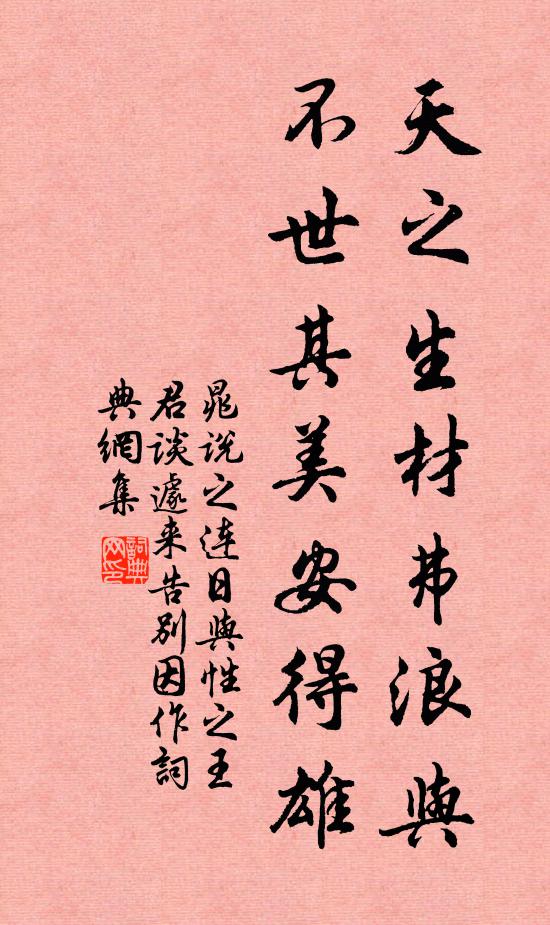 天之生材弗浪與
不世其美安得雄
晁說之連日與性之王
君談遽来告別因作詞
典網集
詞典網印